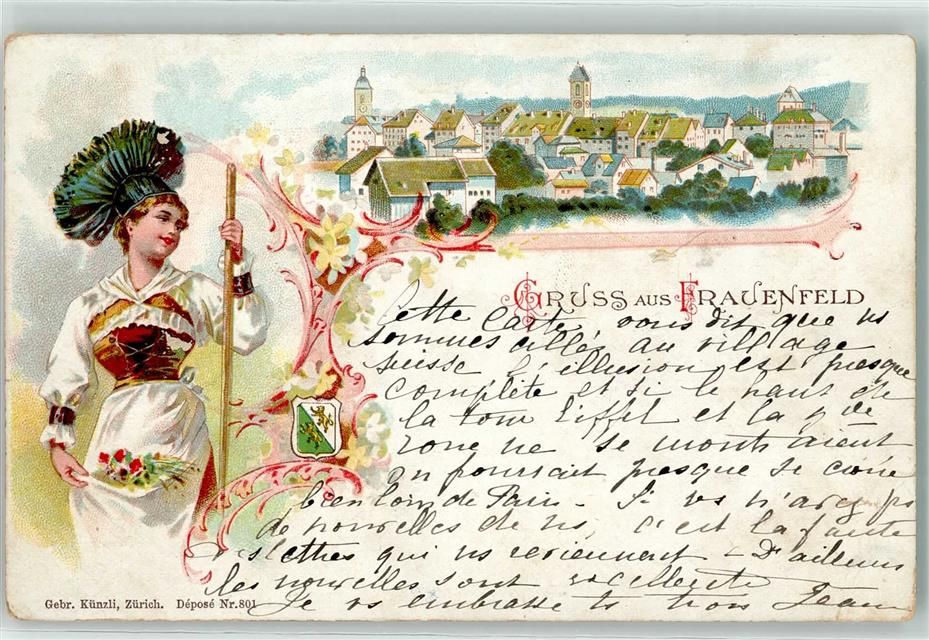 GRUSS AUS FRAUENFELD
Cette carte vous dit que ns
sommes allés au village
suisse l'illusion est presque
complète et si le haut de
la tour Eiffel et la gde
roue ne se montraient
on pourrait presque se croire
bien loin de Paris - Si vs n'avez ps
de nouvelles de ns, c'est la faute
lettres qui ns reviennent - D'ailleurs
les nouvelles sont excellentes
Je vs embrasse ts trois Jean
Gebr. Künzli, Zürich. Déposé Nr.801